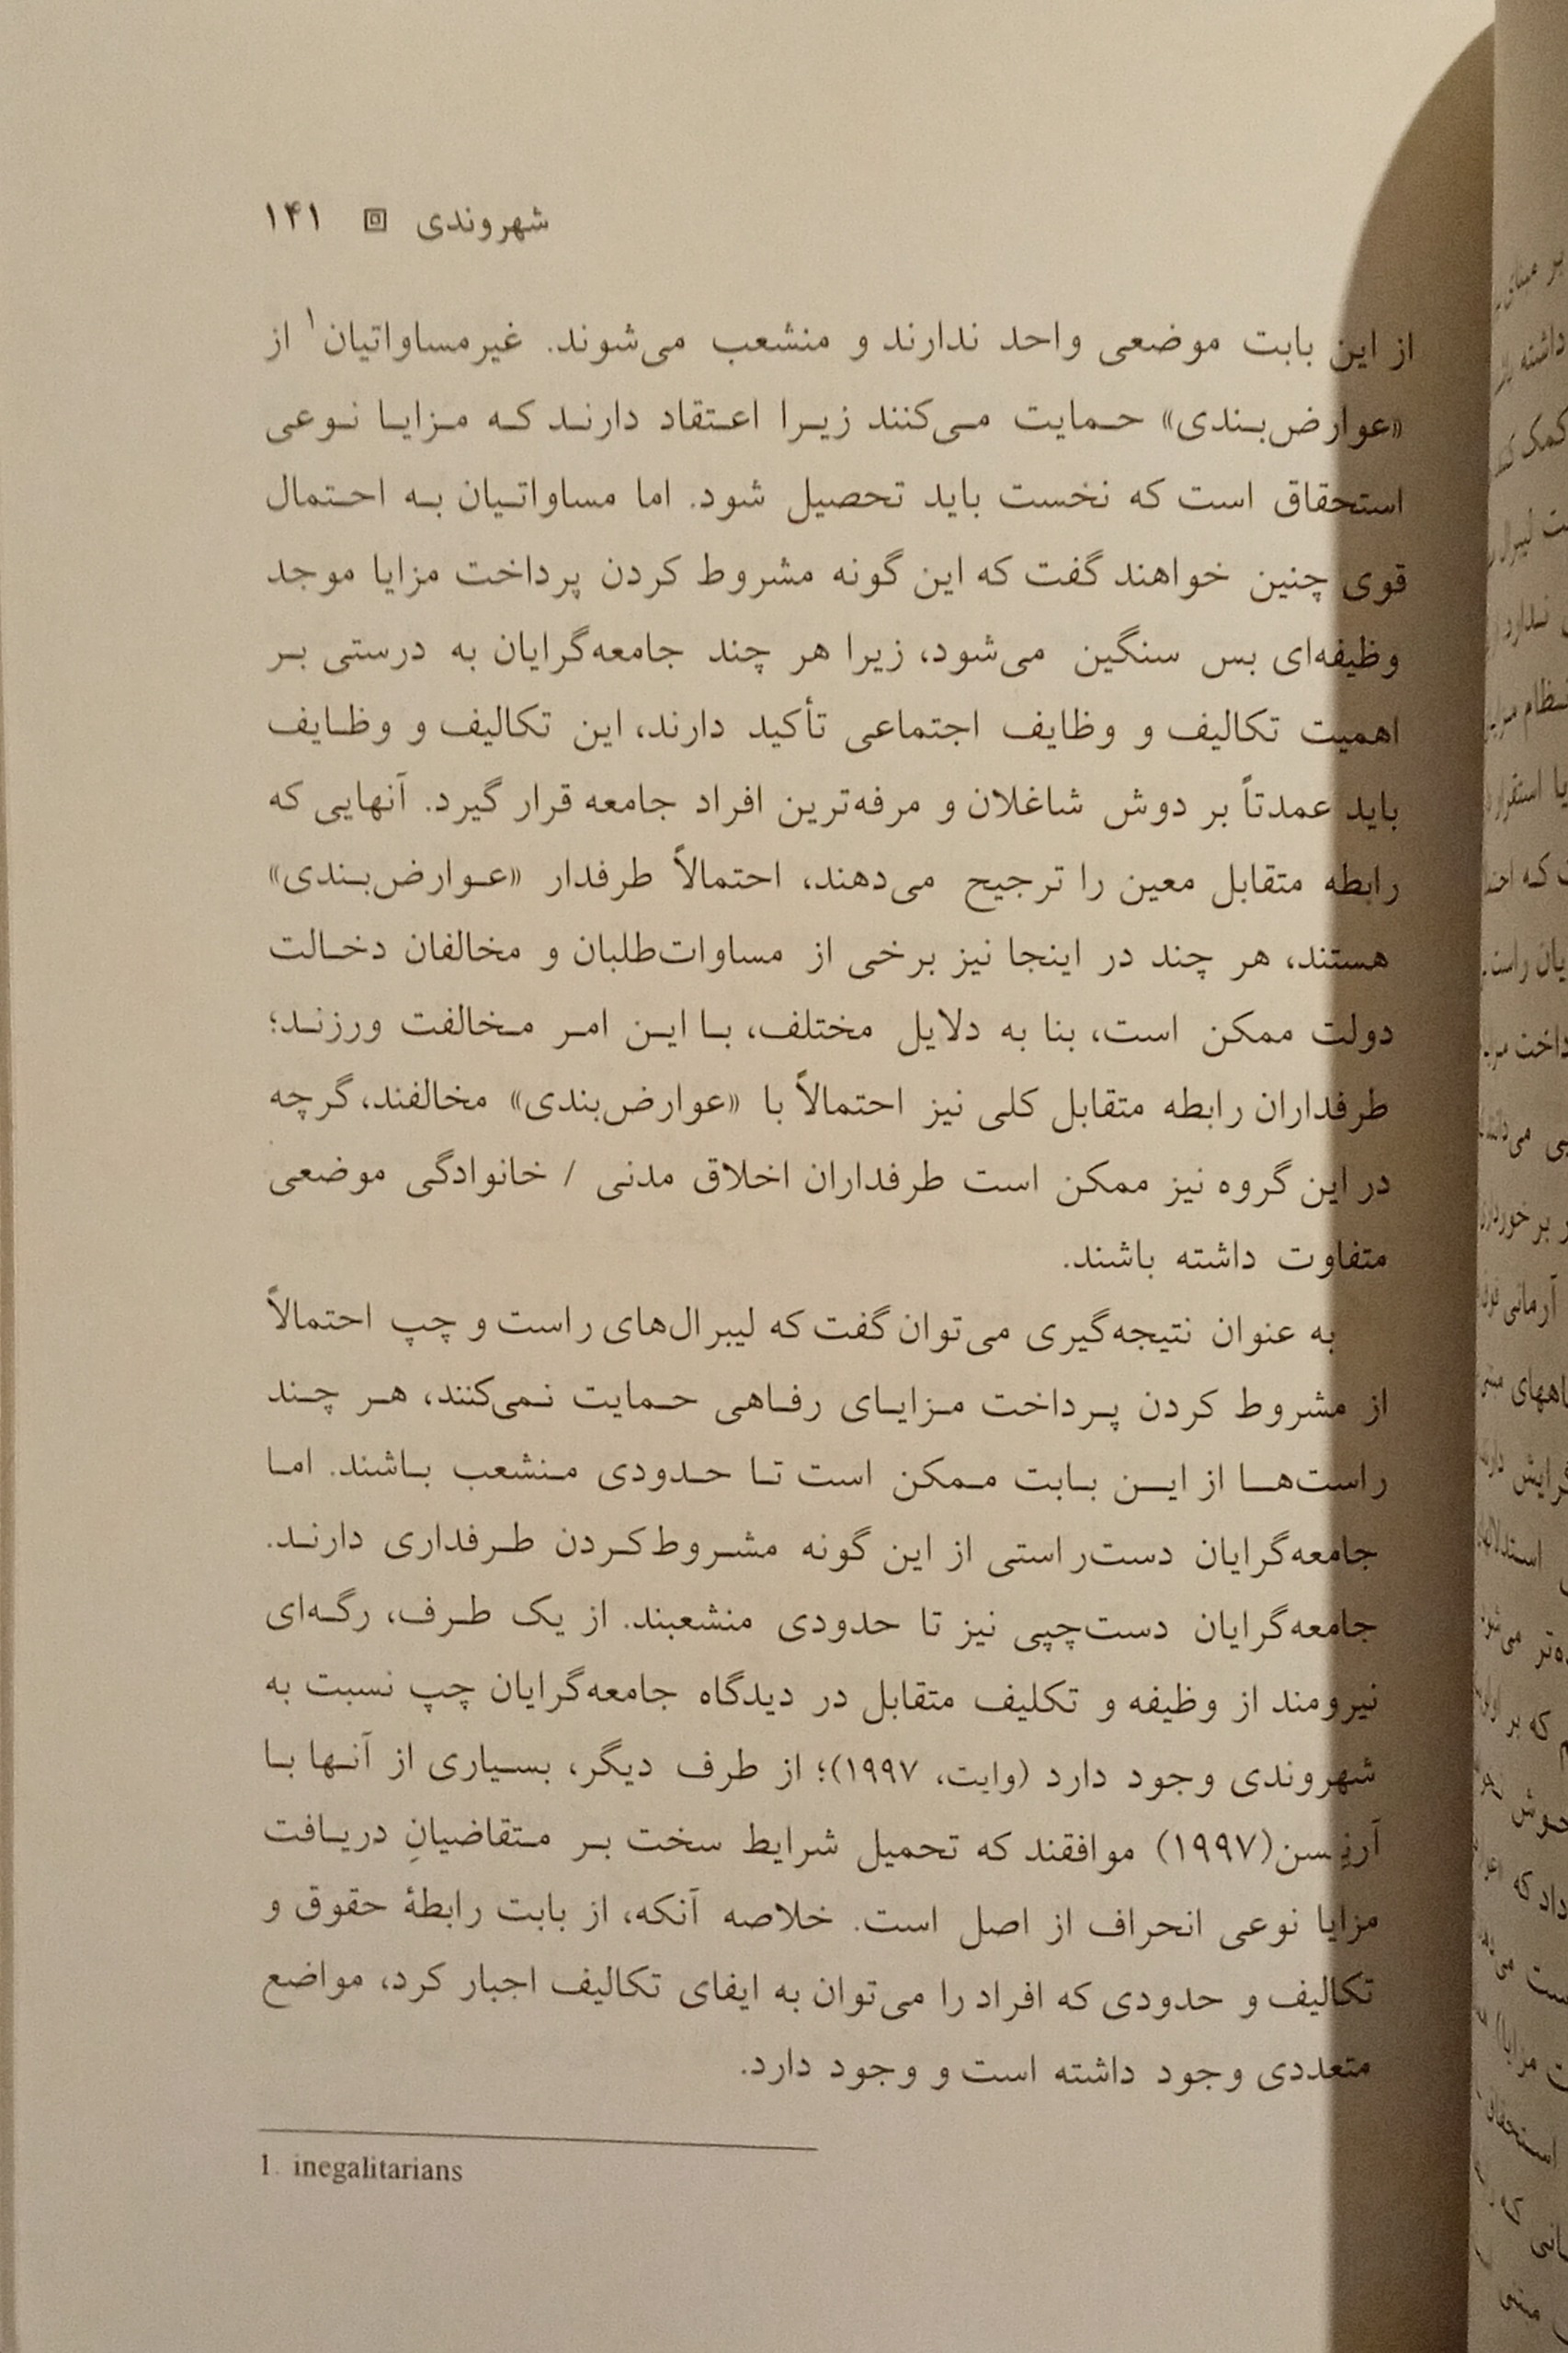 شهروندی ▣ ۱۴۱
از این بابت موضعی واحد ندارند و منشعب می‌شوند. غیرمساواتیان۱ از
«عوارض‌بندی» حمایت می‌کنند زیرا اعتقاد دارند که مزایا نوعی
استحقاق است که نخست باید تحصیل شود. اما مساواتیان به احتمال
قوی چنین خواهند گفت که این گونه مشروط کردن پرداخت مزایا موجد
وظیفه‌ای بس سنگین می‌شود، زیرا هر چند جامعه‌گرایان به درستی بر
اهمیت تکالیف و وظایف اجتماعی تأکید دارند، این تکالیف و وظایف
باید عمدتاً بر دوش شاغلان و مرفه‌ترین افراد جامعه قرار گیرد. آنهایی که
رابطه متقابل معین را ترجیح می‌دهند، احتمالاً طرفدار «عوارض‌بندی»
هستند، هر چند در اینجا نیز برخی از مساوات‌طلبان و مخالفان دخالت
دولت ممکن است، بنا به دلایل مختلف، با این امر مخالفت ورزند؛
طرفداران رابطه متقابل کلی نیز احتمالاً با «عوارض‌بندی» مخالفند، گرچه
در این گروه نیز ممکن است طرفداران اخلاق مدنی / خانوادگی موضعی
متفاوت داشته باشند.
به عنوان نتیجه‌گیری می‌توان گفت که لیبرال‌های راست و چپ احتمالاً
از مشروط کردن پرداخت مزایای رفاهی حمایت نمی‌کنند، هر چند
راست‌ها از این بابت ممکن است تا حدودی منشعب باشند. اما
جامعه‌گرایان دست‌راستی از این گونه مشروط‌کردن طرفداری دارند.
جامعه‌گرایان دست‌چپی نیز تا حدودی منشعبند. از یک طرف، رگه‌ای
نیرومند از وظیفه و تکلیف متقابل در دیدگاه جامعه‌گرایان چپ نسبت به
شهروندی وجود دارد (وایت، ۱۹۹۷)؛ از طرف دیگر، بسیاری از آنها با
(۱۹۹۷) موافقند که تحمیل شرایط سخت بر متقاضیانِ دریافت
مزایا نوعی انحراف از اصل است. خلاصه آنکه، از بابت رابطهٔ حقوق و
تکالیف و حدودی که افراد را می‌توان به ایفای تکالیف اجبار کرد، مواضع
متعددی وجود داشته است و وجود دارد.
1. inegalitarians